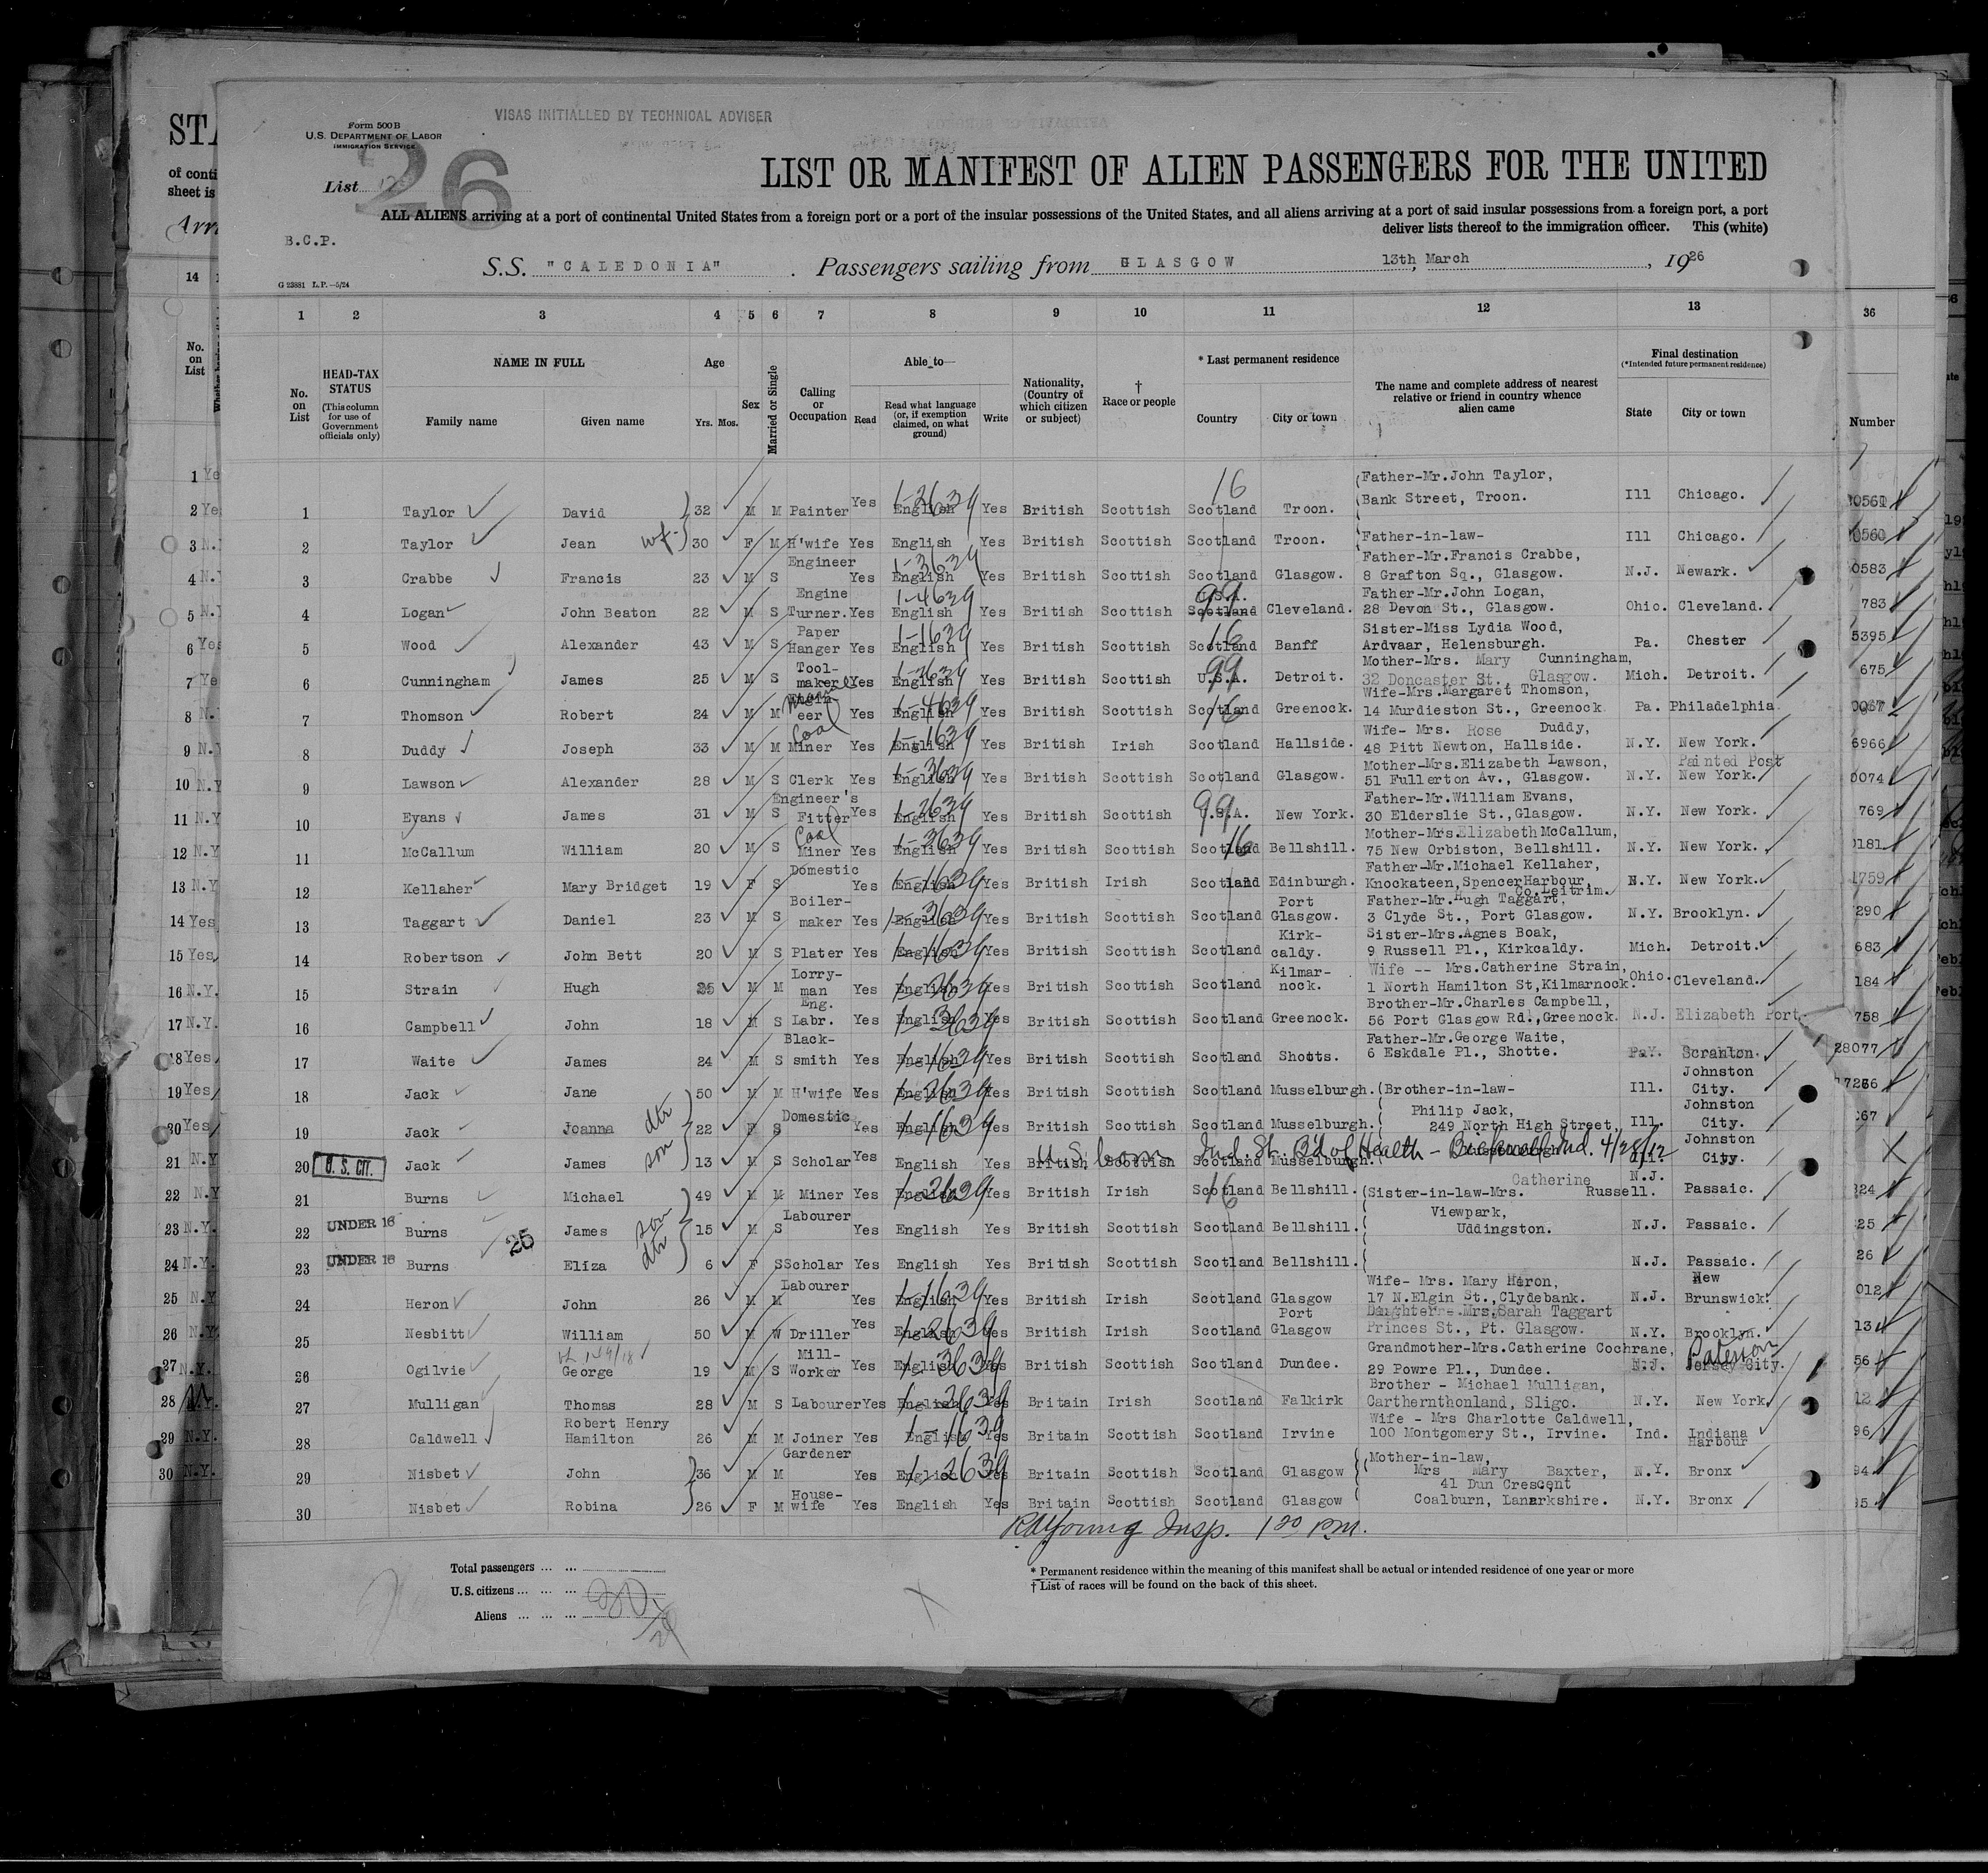 VISAS INITIALLED BY TECHNICAL ADVISER
Form 500 B
U.S. DEPARTMENT OF LABOR
IMMIGRATION SERVICE
26
List
LIST OR MANIFEST OF ALIEN PASSENGERS FOR THE UNITED
ALL ALIENS arriving at a port of continental United States from a foreign port or a port of the insular possessions of the United States, and all aliens arriving at a port of said insular possessions from a foreign port, a port
deliver lists thereof to the immigration officer. This (white)
B.C.P.
S.S. "CALEDONIA" . Passengers sailing from GLASGOW 13th, March , 1926
G 23881 L.P.—5/24
1 2 3 4 5 6 7 8 9 10 11 12 13 36
No. on List
HEAD-TAX STATUS
(This column for use of Government officials only)
NAME IN FULL
Family name Given name
Age
Yrs. Mos.
Sex
Married or Single
Calling or Occupation
Able to—
Read
Read what language (or, if exemption claimed, on what ground)
Write
Nationality, (Country of which citizen or subject)
† Race or people
* Last permanent residence
Country City or town
The name and complete address of nearest relative or friend in country whence alien came
Final destination
(*Intended future permanent residence)
State City or town
Number
1 Taylor David 32 M M Painter Yes English Yes British Scottish Scotland Troon. Father-Mr.John Taylor, Bank Street, Troon. Ill Chicago.
2 Taylor Jean wf. 30 F M H'wife Yes English Yes British Scottish Scotland Troon. Father-in-law- Ill Chicago.
3 Crabbe Francis 23 M S Engineer Yes English Yes British Scottish Scotland Glasgow. Father-Mr.Francis Crabbe, 8 Grafton Sq., Glasgow. N.J. Newark.
4 Logan John Beaton 22 M S Engine Turner. Yes English Yes British Scottish U.S.A. Scotland Cleveland. Father-Mr.John Logan, 28 Devon St., Glasgow. Ohio. Cleveland.
5 Wood Alexander 43 M S Paper Hanger Yes English Yes British Scottish Scotland Banff Sister-Miss Lydia Wood, Ardvaar, Helensburgh. Pa. Chester
6 Cunningham James 25 M S Tool-maker Yes English Yes British Scottish U.S.A. Detroit. Mother-Mrs. Mary Cunningham, 32 Doncaster St. Glasgow. Mich. Detroit.
7 Thomson Robert 24 M M Engin-eer Yes English Yes British Scottish Scotland Greenock. Wife-Mrs.Margaret Thomson, 14 Murdieston St., Greenock Pa. Philadelphia.
8 Duddy Joseph 33 M M Coal Miner Yes English Yes British Irish Scotland Hallside. Wife- Mrs. Rose Duddy, 48 Pitt Newton, Hallside. N.Y. New York.
9 Lawson Alexander 28 M S Clerk Yes English Yes British Scottish Scotland Glasgow. Mother-Mrs.Elizabeth Lawson, 51 Fullerton Av., Glasgow. N.Y. Painted Post New York.
10 Evans James 31 M S Engineer's Fitter Yes English Yes British Scottish U.S.A. New York. Father-Mr.William Evans, 30 Elderslie St.,Glasgow. N.Y. New York.
11 McCallum William 20 M S Coal Miner Yes English Yes British Scottish Scotland Bellshill. Mother-Mrs.Elizabeth McCallum, 75 New Orbiston, Bellshill. N.Y. New York.
12 Kellaher Mary Bridget 19 F S Domestic Yes English Yes British Irish Scotland Edinburgh. Father-Mr.Michael Kellaher, Knockateen,Spencer Harbour, Co.Leitrim. N.Y. New York.
13 Taggart Daniel 23 M S Boiler-maker Yes English Yes British Scottish Scotland Port Glasgow. Father-Mr.Hugh Taggart, 3 Clyde St., Port Glasgow. N.Y. Brooklyn.
14 Robertson John Bett 20 M S Plater Yes English Yes British Scottish Scotland Kirk-caldy. Sister-Mrs.Agnes Boak, 9 Russell Pl., Kirkcaldy. Mich. Detroit.
15 Strain Hugh M M Lorry-man Yes English Yes British Scottish Scotland Kilmar-nock. Wife -- Mrs.Catherine Strain, 1 North Hamilton St,Kilmarnock. Ohio. Cleveland.
16 Campbell John 18 M S Eng. Labr. Yes English Yes British Scottish Scotland Greenock. Brother-Mr.Charles Campbell, 56 Port Glasgow Rd.,Greenock. N.J. Elizabeth Port.
17 Waite James 24 M S Black-smith Yes English Yes British Scottish Scotland Shotts. Father-Mr.George Waite, 6 Eskdale Pl., Shotte. Scranton. 28077
18 Jack Jane 50 M M H'wife Yes English Yes British Scottish Scotland Musselburgh. (Brother-in-law- Ill. Johnston City.
19 Jack Joanna dtr 22 F S Domestic Yes English Yes British Scottish Scotland Musselburgh. Philip Jack, 249 North High Street, Ill. Johnston City.
20 U.S. CIT. Jack James son 13 M S Scholar Yes English Yes British Scottish Scotland Musselburgh. Johnston City.
U.S. born Ind. St. B'd of Health - Bicknell Ind. 4/28/12
21 Burns Michael 49 M M Miner Yes English Yes British Irish Scotland Bellshill. (Sister-in-law-Mrs. Catherine Russell. N.J. Passaic.
22 UNDER 16 Burns James son 15 M S Labourer Yes English Yes British Scottish Scotland Bellshill. Viewpark, Uddingston. N.J. Passaic.
23 UNDER 16 Burns 25 Eliza dtr 6 F S Scholar Yes English Yes British Scottish Scotland Bellshill. N.J. Passaic.
24 Heron John 26 M M Labourer Yes English Yes British Irish Scotland Glasgow Wife- Mrs. Mary Heron, 17 N.Elgin St.,Clydebank. N.J. New Brunswick.
25 Nesbitt William 50 M W Driller Yes English Yes British Irish Scotland Port Glasgow Daughter- Mrs.Sarah Taggart Princes St., Pt. Glasgow. N.Y. Brooklyn.
26 Ogilvie George 19 M S Mill-Worker Yes English Yes British Scottish Scotland Dundee. Grandmother-Mrs.Catherine Cochrane, 29 Powre Pl., Dundee. N.J. Jersey City. Paterson
27 Mulligan Thomas 28 M S Labourer Yes English Yes Britain Irish Scotland Falkirk Brother - Michael Mulligan, Carthernthonland, Sligo. N.Y. New York.
28 Caldwell Robert Henry Hamilton 26 M M Joiner Yes English Yes Britain Scottish Scotland Irvine Wife - Mrs Charlotte Caldwell, 100 Montgomery St., Irvine. Ind. Indiana Harbour
29 Nisbet John 36 M M Gardener Yes English Yes Britain Scottish Scotland Glasgow Mother-in-law, Mrs Mary Baxter, N.Y. Bronx
30 Nisbet Robina 26 F M House-wife Yes English Yes Britain Scottish Scotland Glasgow 41 Dun Crescent Coalburn, Lanarkshire. N.Y. Bronx
R A Young Insp. 1 20 P.M.
Total passengers ... ...
U.S. citizens ... ... ...
Aliens ... ... ...
* Permanent residence within the meaning of this manifest shall be actual or intended residence of one year or more
† List of races will be found on the back of this sheet.